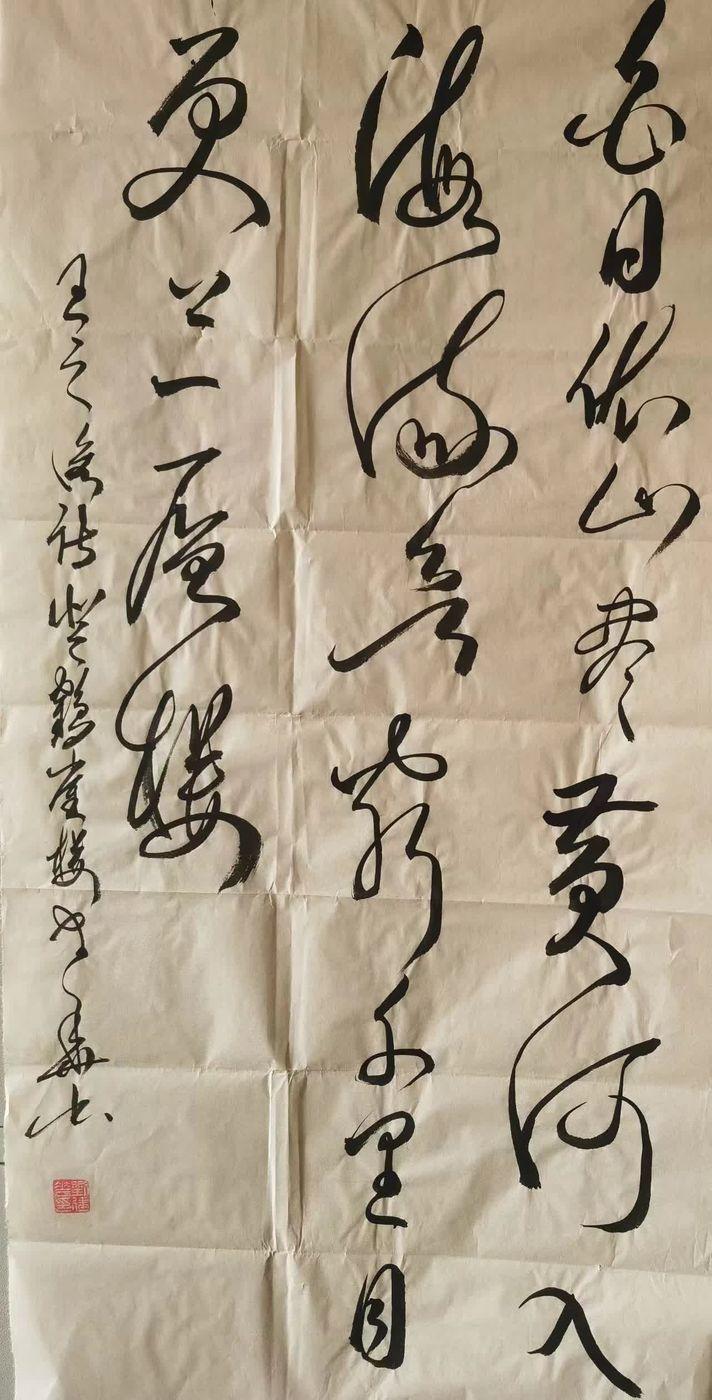 白日依山尽黄河入
海流欲穷千里目
更上一层楼
王之涣诗登鹳雀楼